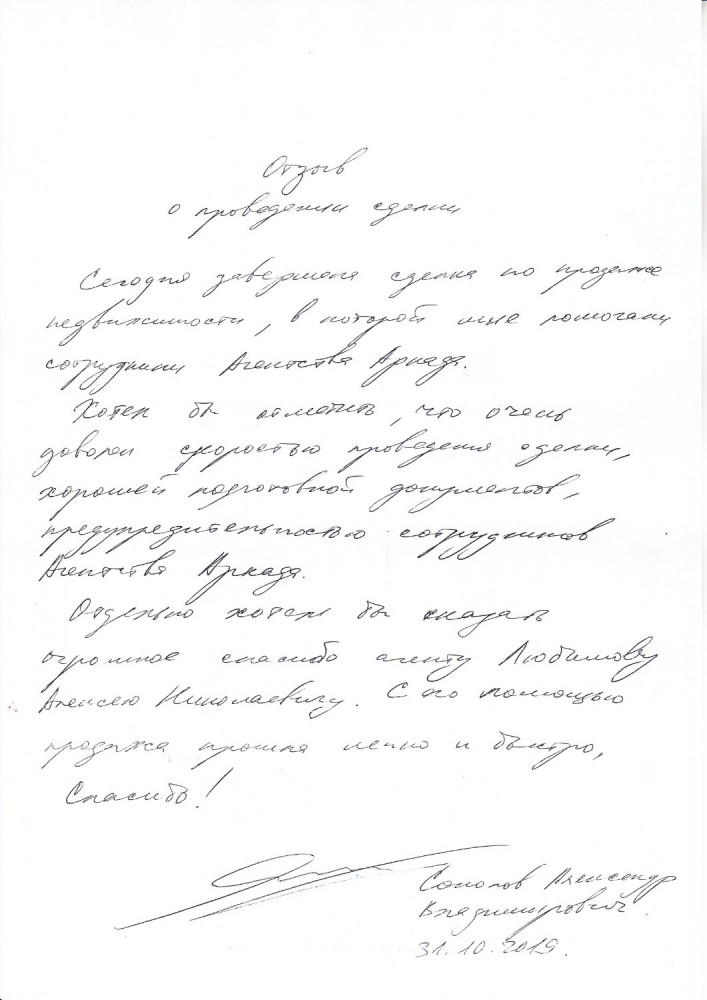 Отзыв
о проведении сделки
Сегодня завершена сделка по продаже
недвижимости, в которой мне помогали
сотрудники Агентства Аркада.
Хотел бы отметить, что очень
доволен скоростью проведения сделки,
хорошей подготовкой документов,
предупредительностью сотрудников
Агентства Аркада.
Отдельно хотел бы сказать
огромное спасибо агенту Любимову
Алексею Николаевичу. С его помощью
продажа прошла легко и быстро,
Спасибо!
Соколов Александр
Владимирович.
31.10.2019.